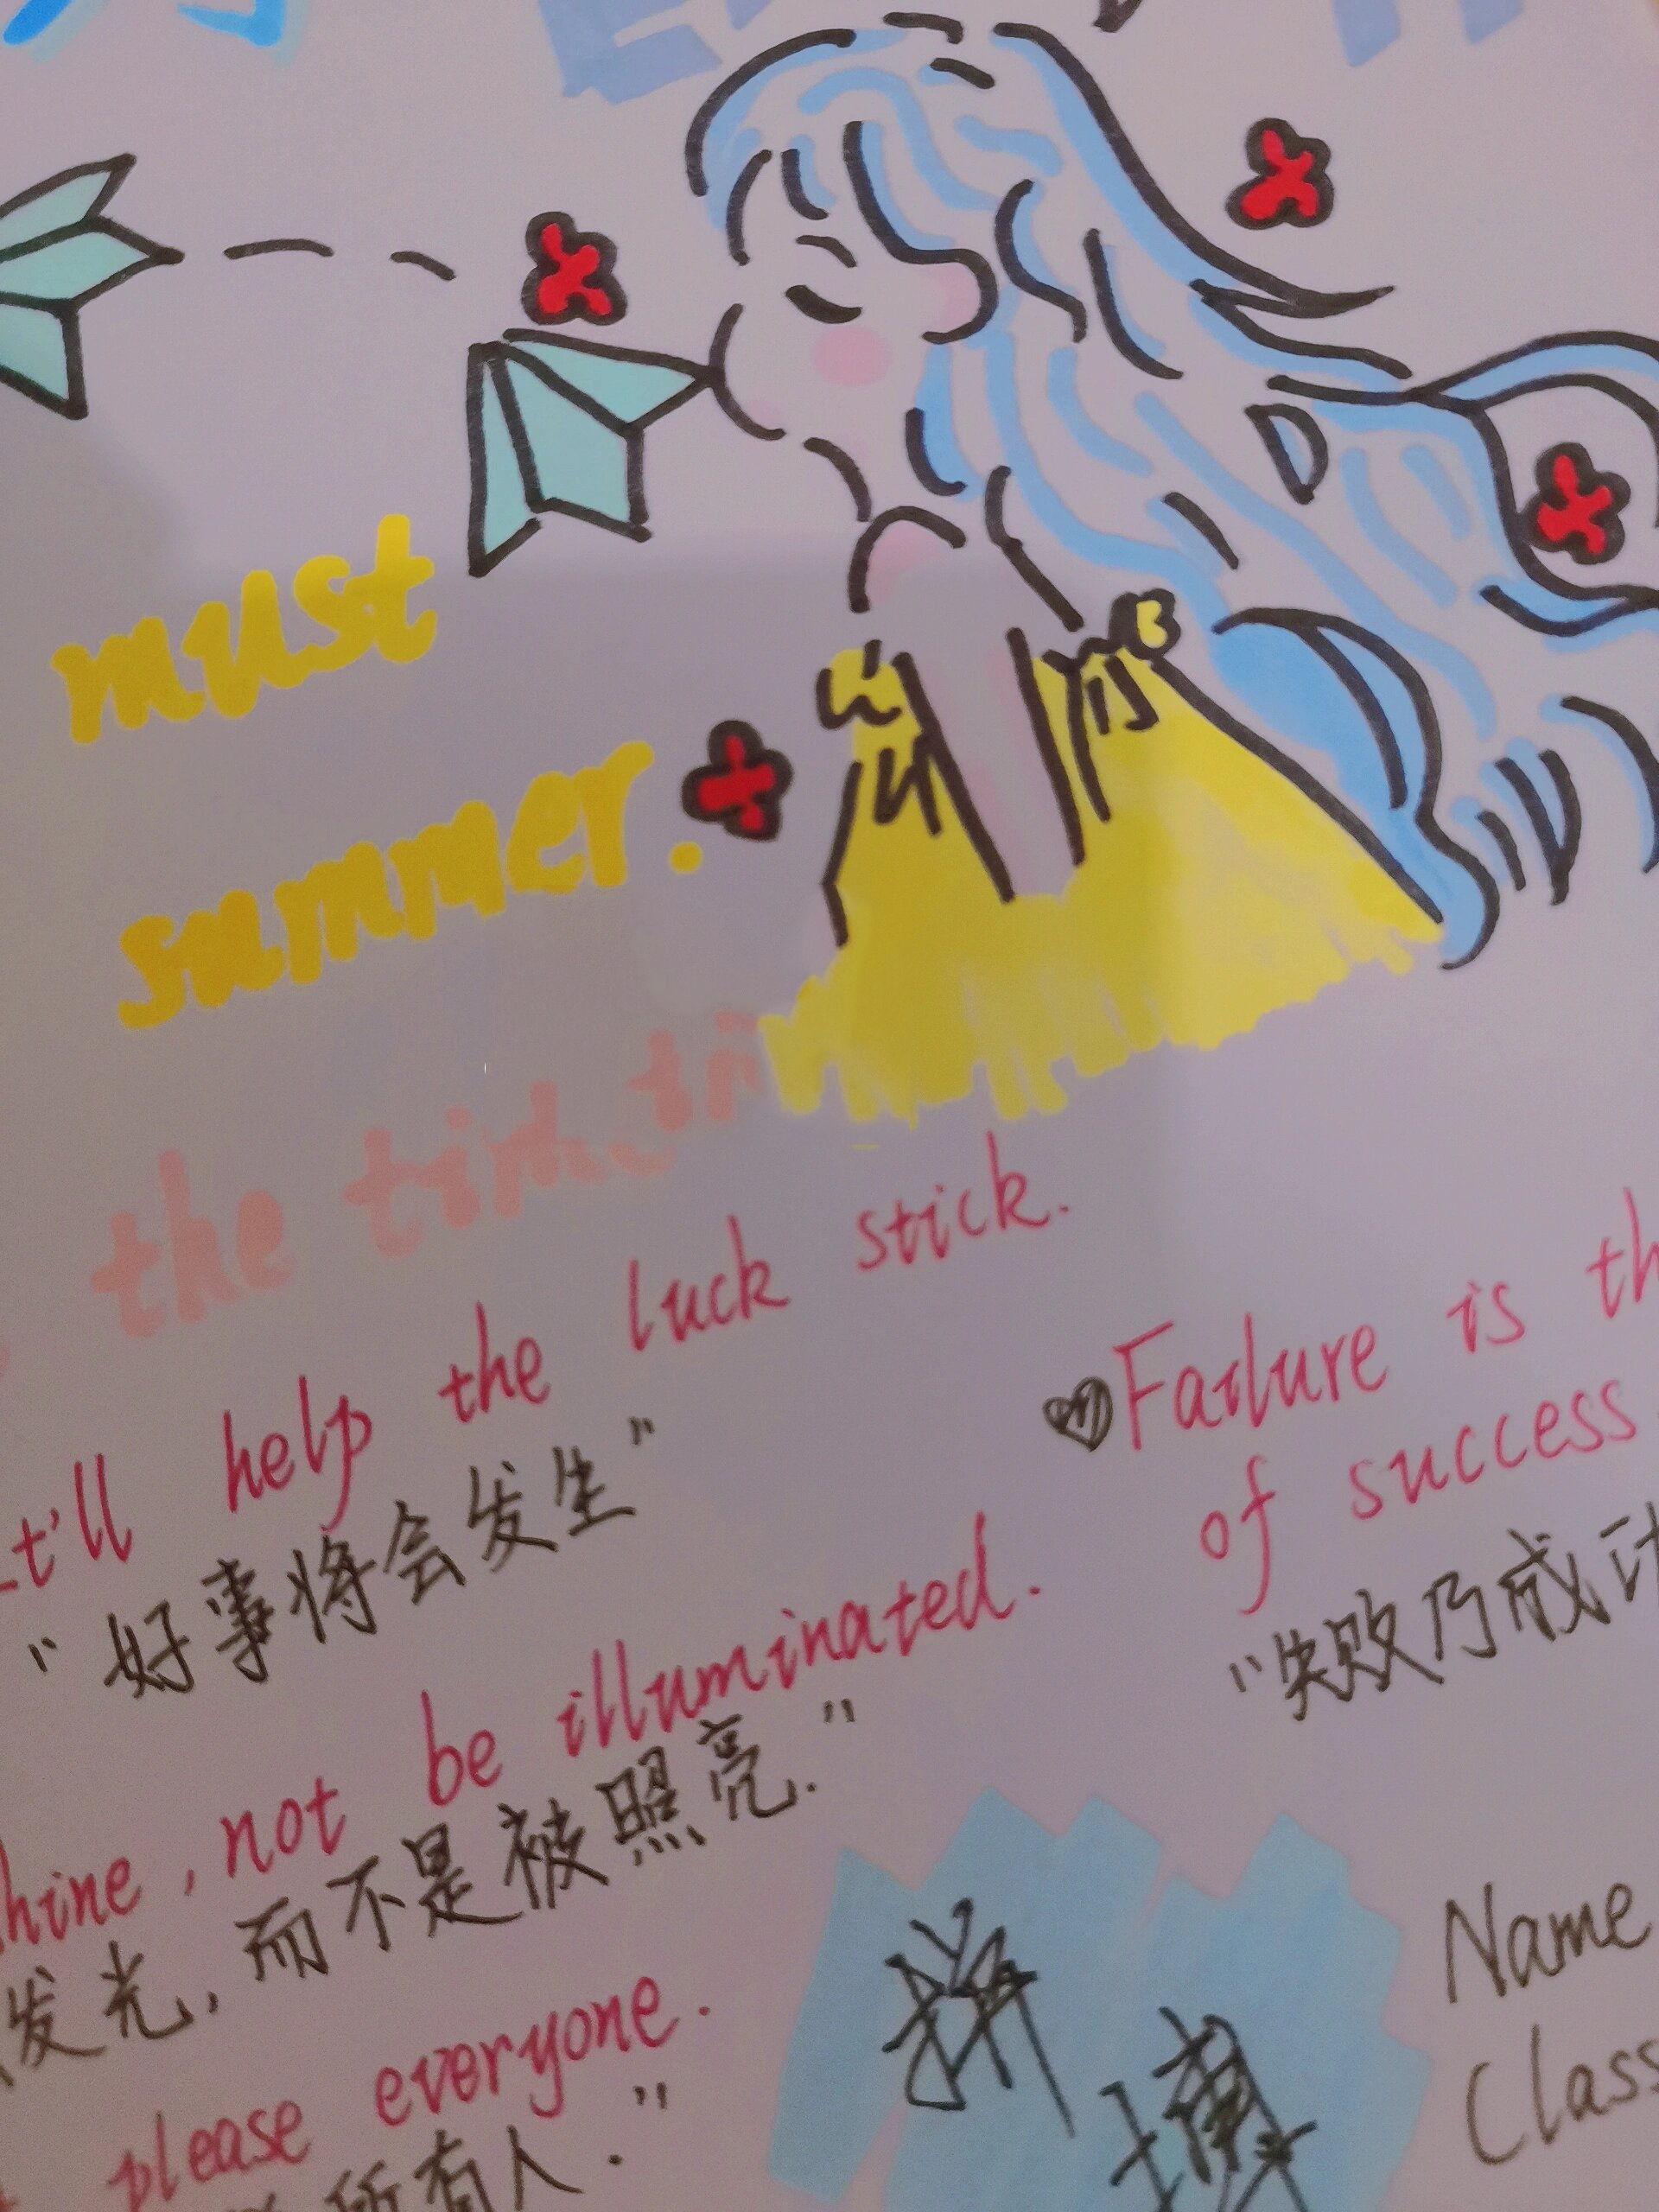 must
summer.
the
t'll help the luck stick.
"好事将会发生"
Failure is th
of success
"失败乃成
hine, not be illuminated.
发光,而不是被照亮."
please everyone.
所有人."
拼
搏
Name
Class